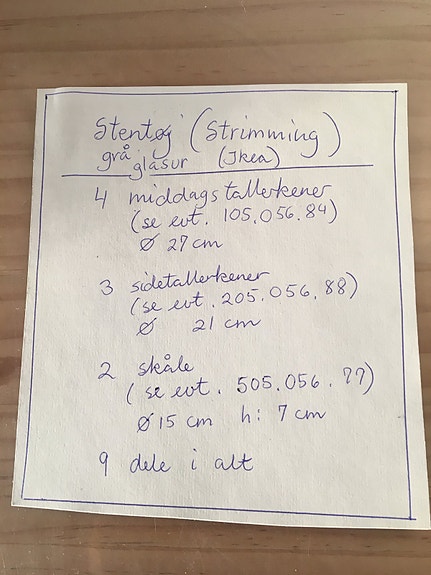 Stentøj (Strimming)
grå glasur (Ikea)
4 middagstallerkener
(se evt. 105.056.84)
Ø 27 cm
3 sidetallerkener
(se evt. 205.056.88)
Ø 21 cm
2 skåle
(se evt. 505.056.77)
Ø 15 cm h: 7 cm
9 dele i alt